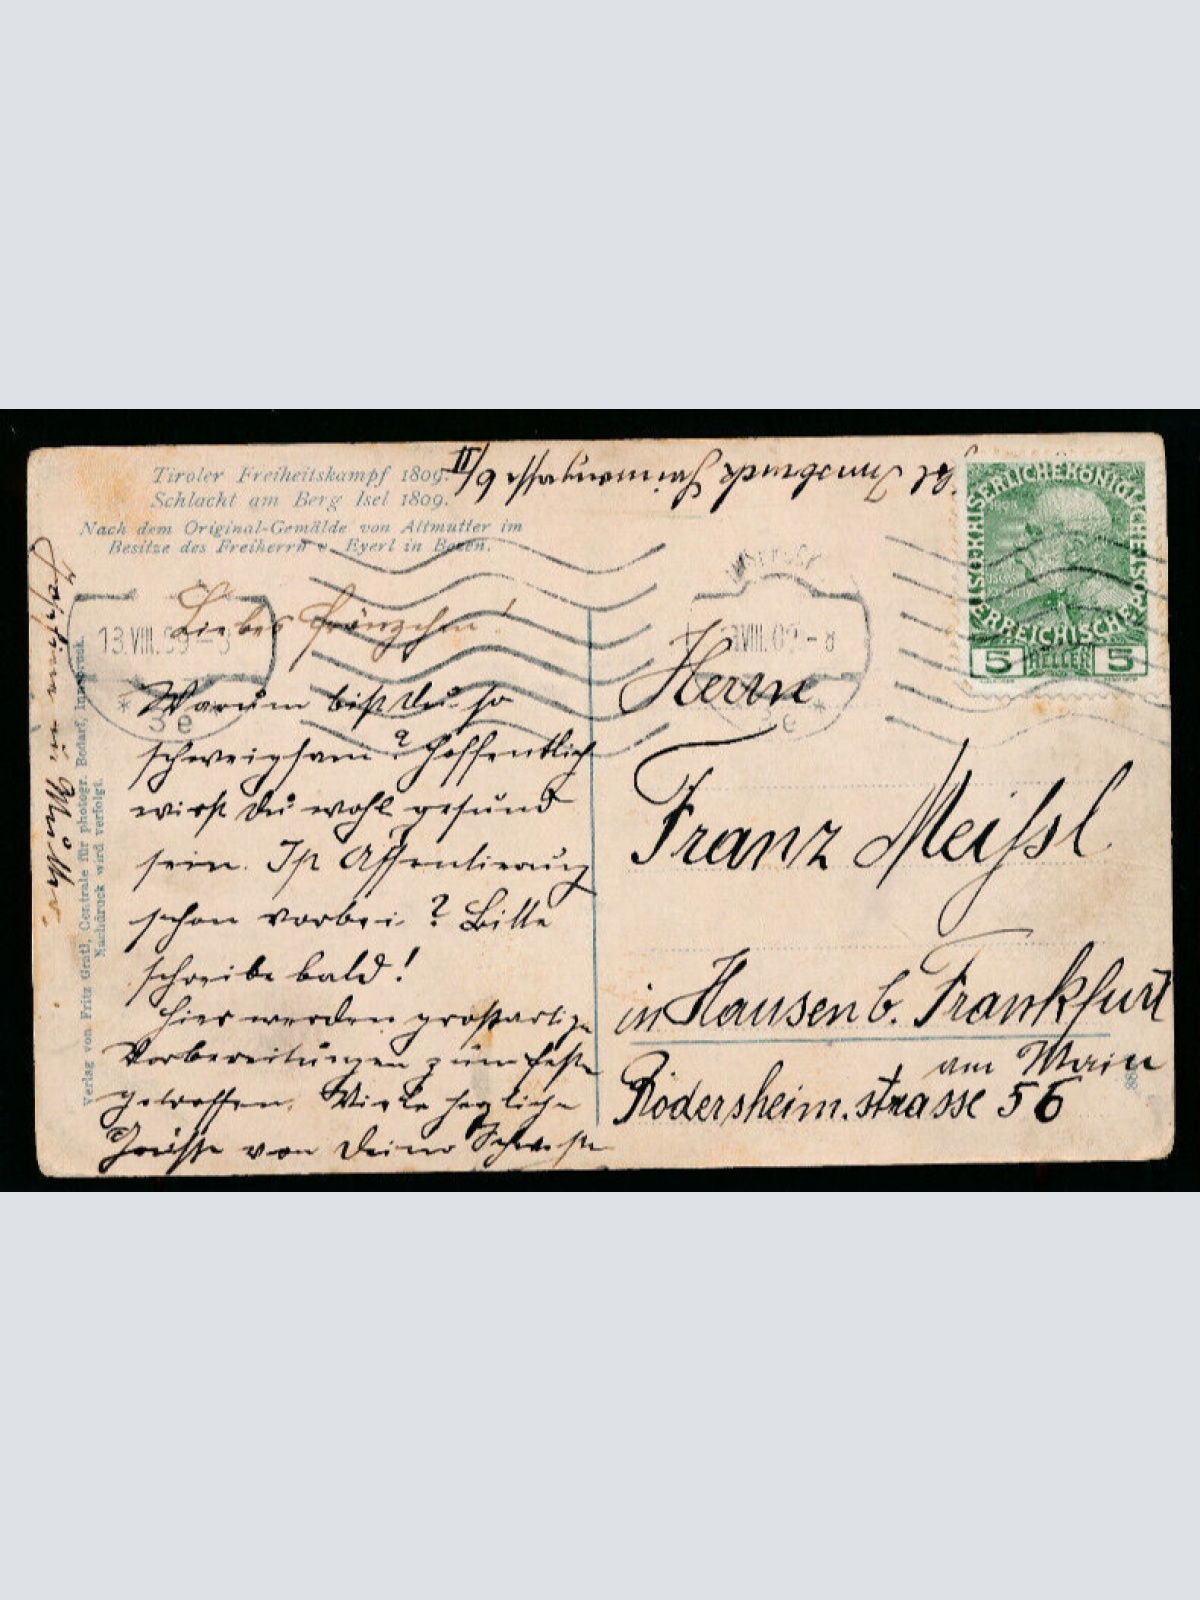 Tiroler Freiheitskampf 1809.
Schlacht am Berg Isel 1809.
Nach dem Original-Gemälde von Altmutter im
Besitze des Freiherrn v. Eyerl in Bozen.
Innsbruck 6/II
13.VIII.09 - 8
* 3e
Liebes Fränzchen!
Warum bist Du so
schweigsam? Hoffentlich
wirst Du wohl gesund
sein. Ist Assentierung
schon vorbei? Bitte
schreibe bald!
Hier werden großartige
Vorbereitungen zum Feste
getroffen. Viele herzliche
Grüße von Deiner Schwester
u. Mutter.
Verlag von Fritz Gratl, Centrale für photogr. Bedarf, Innsbruck.
Nachdruck wird verfolgt.
INNSBRUCK
VIII.09 - 8
3e *
KAISERLICHEKÖNIGLICHE ÖSTERREICHISCHE POST
1908
5 HELLER 5
Herrn
Franz Meissl
in Hausen b. Frankfurt
am Main
Rödersheim.strasse 56
88